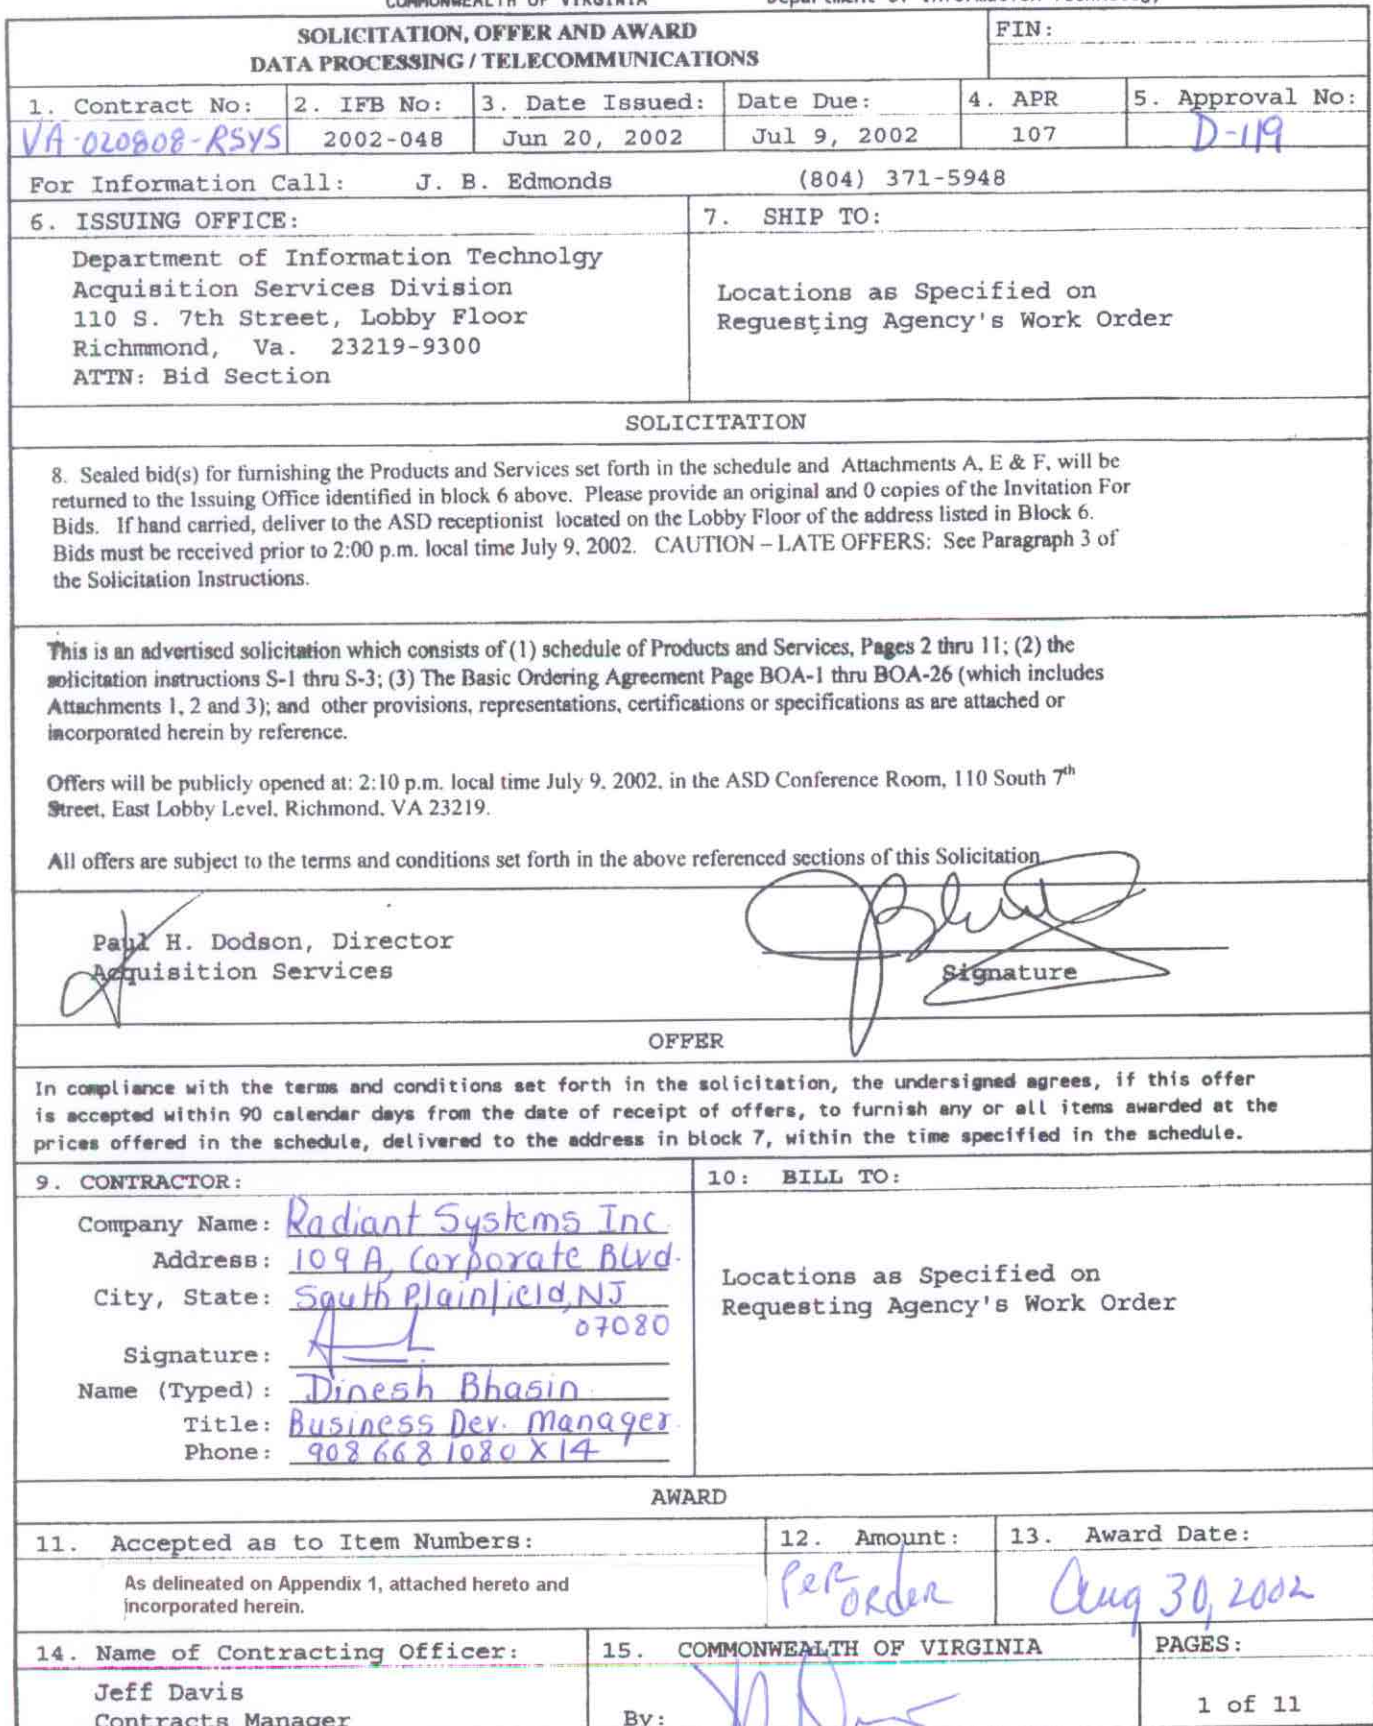 COMMONWEALTH OF VIRGINIA Department of Information Technology
SOLICITATION, OFFER AND AWARD
DATA PROCESSING / TELECOMMUNICATIONS
FIN:
1. Contract No: 2. IFB No: 3. Date Issued: Date Due: 4. APR 5. Approval No:
VA-020808-RSYS 2002-048 Jun 20, 2002 Jul 9, 2002 107 D-119
For Information Call: J. B. Edmonds (804) 371-5948
6. ISSUING OFFICE:
Department of Information Technolgy
Acquisition Services Division
110 S. 7th Street, Lobby Floor
Richmmond, Va. 23219-9300
ATTN: Bid Section
7. SHIP TO:
Locations as Specified on
Reguesting Agency's Work Order
SOLICITATION
8. Sealed bid(s) for furnishing the Products and Services set forth in the schedule and Attachments A, E & F, will be
returned to the Issuing Office identified in block 6 above. Please provide an original and 0 copies of the Invitation For
Bids. If hand carried, deliver to the ASD receptionist located on the Lobby Floor of the address listed in Block 6.
Bids must be received prior to 2:00 p.m. local time July 9, 2002. CAUTION – LATE OFFERS: See Paragraph 3 of
the Solicitation Instructions.
This is an advertised solicitation which consists of (1) schedule of Products and Services, Pages 2 thru 11; (2) the
solicitation instructions S-1 thru S-3; (3) The Basic Ordering Agreement Page BOA-1 thru BOA-26 (which includes
Attachments 1, 2 and 3); and other provisions, representations, certifications or specifications as are attached or
incorporated herein by reference.
Offers will be publicly opened at: 2:10 p.m. local time July 9, 2002, in the ASD Conference Room, 110 South 7th
Street, East Lobby Level, Richmond, VA 23219.
All offers are subject to the terms and conditions set forth in the above referenced sections of this Solicitation
Paul H. Dodson, Director
Acquisition Services
Signature
OFFER
In compliance with the terms and conditions set forth in the solicitation, the undersigned agrees, if this offer
is accepted within 90 calendar days from the date of receipt of offers, to furnish any or all items awarded at the
prices offered in the schedule, delivered to the address in block 7, within the time specified in the schedule.
9. CONTRACTOR:
Company Name: Radiant Systems Inc
Address: 109 A, Corporate Blvd.
City, State: South Plainfield, NJ
07080
Signature:
Name (Typed): Dinesh Bhasin
Title: Business Dev. Manager
Phone: 908 668 1080 X 14
10: BILL TO:
Locations as Specified on
Requesting Agency's Work Order
AWARD
11. Accepted as to Item Numbers:
As delineated on Appendix 1, attached hereto and
incorporated herein.
12. Amount:
Per
Order
13. Award Date:
Aug 30, 2002
14. Name of Contracting Officer:
Jeff Davis
Contracts Manager
15. COMMONWEALTH OF VIRGINIA
By:
PAGES:
1 of 11